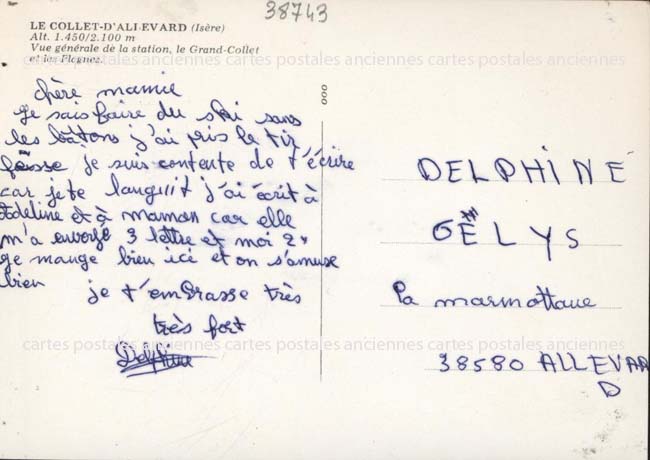 38743
LE COLLET-D'ALLEVARD (Isère)
Alt. 1.450/2.100 m
Vue générale de la station, le Grand-Collet
et les Plagnes.
chère mamie
je sais faire du ski sans
les bâttons j'ai pris le tir
fesse je suis contente de t'écrire
car je te languit j'ai écrit à
Adeline et à maman car elle
m'a envoyé 3 lettre et moi 2
je mange bien ici et on s'amuse
bien
je t'embrasse très
très fort
Delphine
DELPHINE
GÉLYS
la marmottane
38580 ALLEVAR
D
cartes postales anciennes cartes postales anciennes cartes postales anciennes
cartes postales anciennes cartes postales anciennes cartes postales anciennes